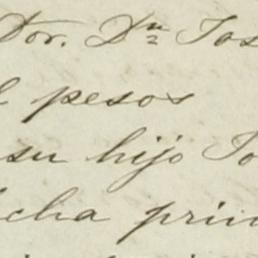 Dor. Dn Jos
l pesos
su hijo Jo
icha prim